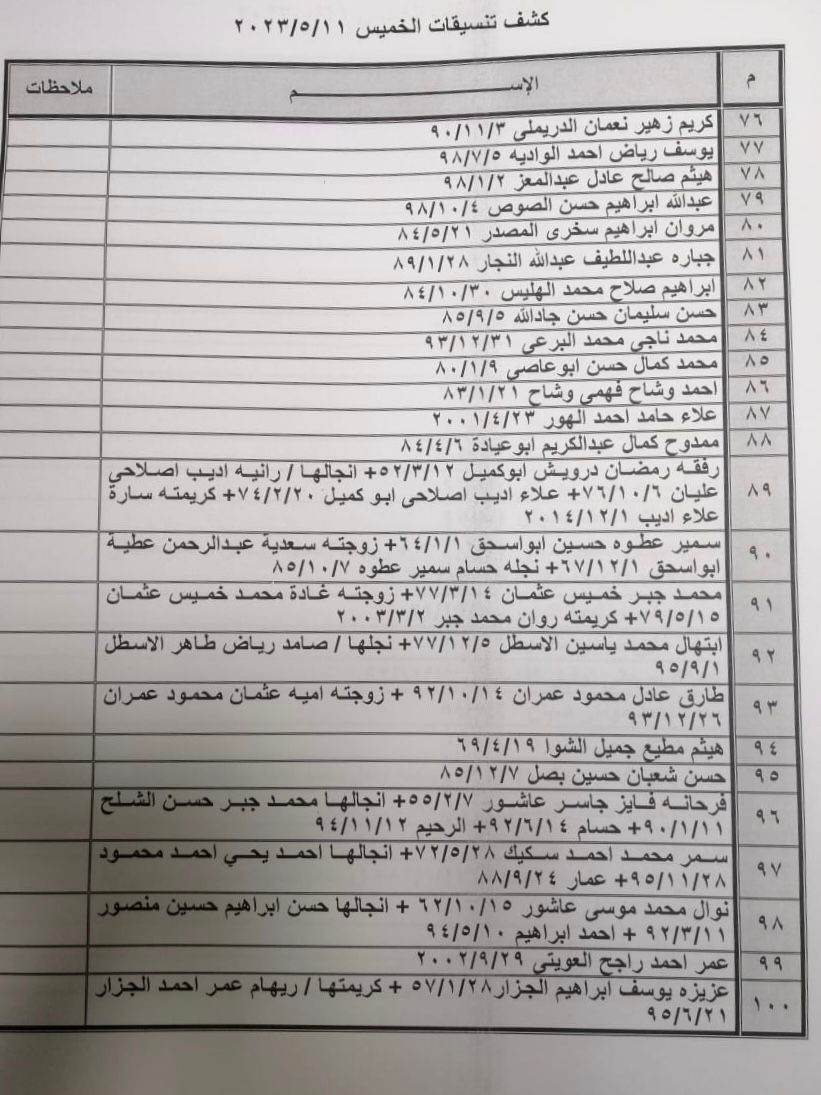 كشف تنسيقات الخميس ٢٠٢٣/٥/١١
م الإســـــــم ملاحظات
٧٦ كريم زهير نعمان الدريملى ٩٠/١١/٣
٧٧ يوسف رياض احمد الواديه ٩٨/٧/٥
٧٨ هيثم صالح عادل عبدالمعز ٩٨/١/٢
٧٩ عبدالله ابراهيم حسن الصوص ٩٨/١٠/٤
٨٠ مروان ابراهيم سخرى المصدر ٨٤/٥/٢١
٨١ جباره عبداللطيف عبدالله النجار ٨٩/١/٢٨
٨٢ ابراهيم صلاح محمد الهليس ٨٤/١٠/٣٠
٨٣ حسن سليمان حسن جادالله ٨٥/٩/٥
٨٤ محمد ناجى محمد البرعى ٩٣/١٢/٣١
٨٥ محمد كمال حسن ابوعاصى ٨٠/١/٩
٨٦ احمد وشاح فهمى وشاح ٨٣/١/٢١
٨٧ علاء حامد احمد الهور ٢٠٠١/٤/٢٣
٨٨ ممدوح كمال عبدالكريم ابوعيادة ٨٤/٤/٦
٨٩ رفقه رمضان درويش ابوكميل ٥٢/٣/١٢+ انجالها / رانيه اديب اصلاحى
عليان ٧٦/١٠/٦+ علاء اديب اصلاحى ابو كميل ٧٤/٢/٢٠+ كريمته سارة
علاء اديب ٢٠١٤/١٢/١
٩٠ سمير عطوه حسين ابواسحق ٦٤/١/١+ زوجته سعدية عبدالرحمن عطية
ابواسحق ٦٧/١٢/١+ نجله حسام سمير عطوه ٨٥/١٠/٧
٩١ محمد جبر خميس عثمان ٧٧/٣/١٤+ زوجته غادة محمد خميس عثمان
٧٩/٥/١٥+ كريمته روان محمد جبر ٢٠٠٣/٣/٢
٩٢ ابتهال محمد ياسين الاسطل ٧٧/١٢/٥+ نجلها / صامد رياض طاهر الاسطل
٩٥/٩/١
٩٣ طارق عادل محمود عمران ٩٢/١٠/١٤ + زوجته اميه عثمان محمود عمران
٩٣/١٢/٢٦
٩٤ هيثم مطيع جميل الشوا ٦٩/٤/١٩
٩٥ حسن شعبان حسين بصل ٨٥/١٢/٧
٩٦ فرحانه فايز جاسر عاشور ٥٥/٢/٧+ انجالها محمد جبر حسن الشلح
٩٠/١/١١+ حسام ٩٢/٦/١٤+ الرحيم ٩٤/١١/١٢
٩٧ سمر محمد احمد سكيك ٧٢/٥/٢٨+ انجالها احمد يحي احمد محمود
٩٥/١١/٢٨+ عمار ٨٨/٩/٢٤
٩٨ نوال محمد موسى عاشور ٦٢/١٠/١٥ + انجالها حسن ابراهيم حسين منصور
٩٢/٣/١١ + احمد ابراهيم ٩٤/٥/١٠
٩٩ عمر احمد راجح العويتى ٢٠٠٢/٩/٢٩
١٠٠ عزيزه يوسف ابراهيم الجزار٥٧/١/٢٨ + كريمتها / ريهام عمر احمد الجزار
٩٥/٦/٢١